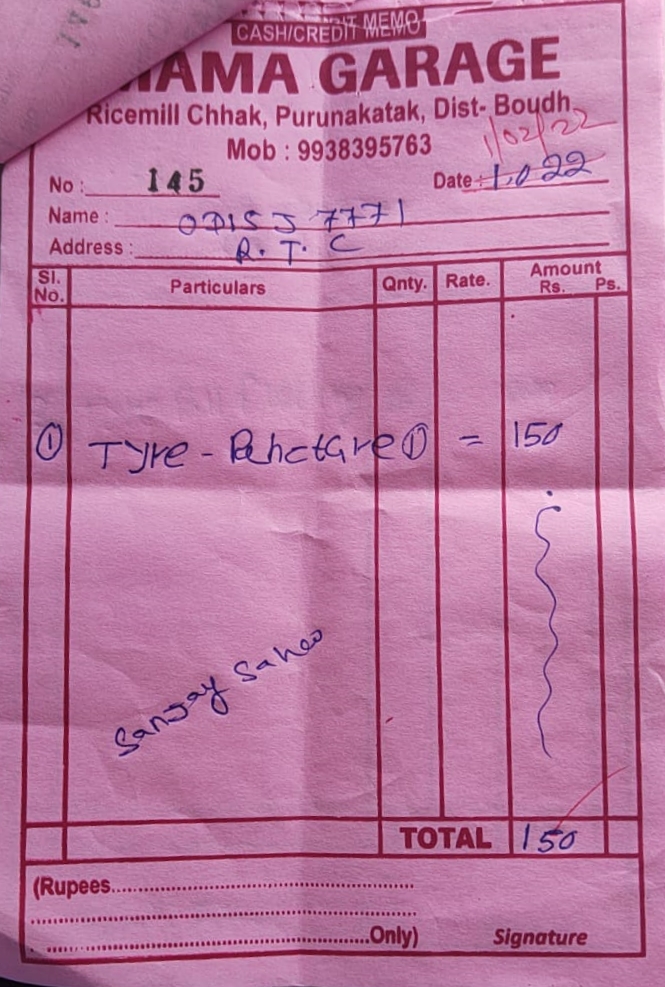 CASH/CREDIT MEMO
MAMA GARAGE
Ricemill Chhak, Purunakatak, Dist- Boudh
Mob : 9938395763
1/02/22
No : 145 Date : 1.0 22
Name : OD15 J 7771
Address : R. T. C
Sl. No. Particulars Qnty. Rate. Amount Rs. Ps.
① Tyre - Panctare ① = 150
Sanjay Sahoo
TOTAL 150
(Rupees
Only) Signature